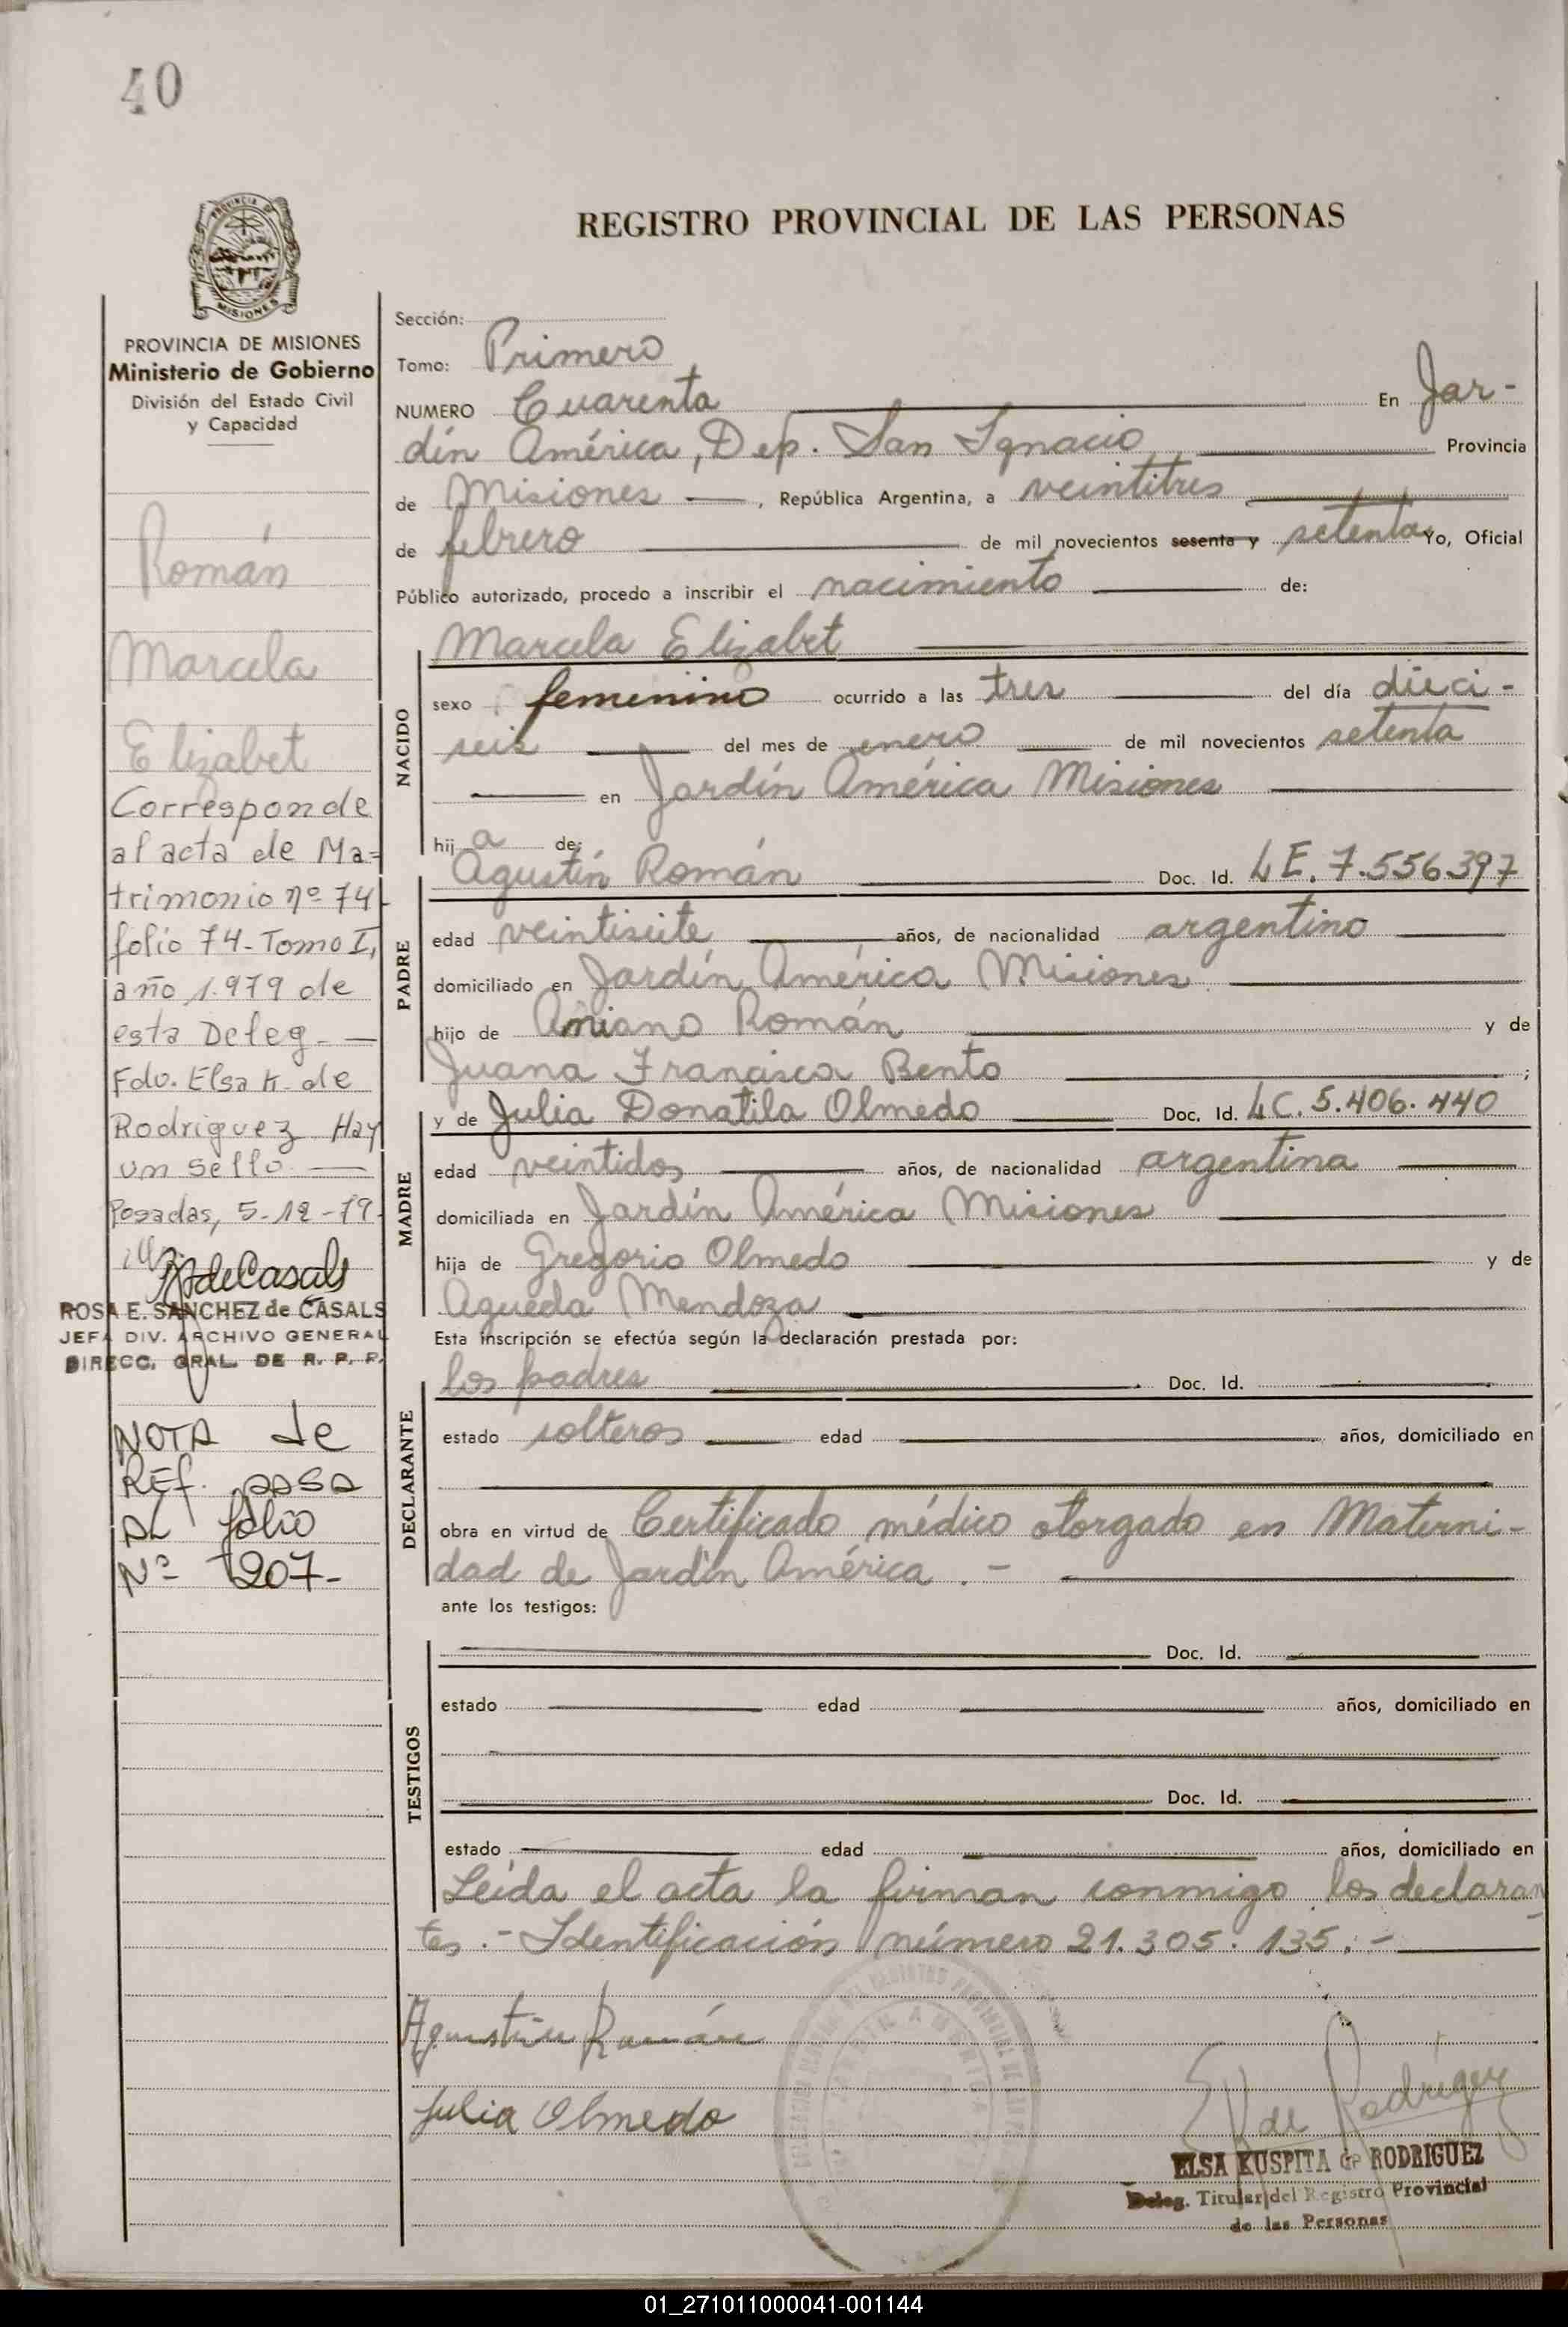 40
PROVINCIA DE
MISIONES
PROVINCIA DE MISIONES
Ministerio de Gobierno
División del Estado Civil
y Capacidad
Román
Marcela
Elizabet
Corresponde
al acta de Ma=
trimonio nº 74
folio 74-Tomo I,
año 1.979 de
esta Deleg. —
Fdo. Elsa K. de
Rodriguez Hay
un sello —
Posadas, 5-12-79
RdeCasals
ROSA E. SANCHEZ de CASALS
JEFA DIV. ARCHIVO GENERAL
DIRECC. GRAL. DE R. P. P.
NOTA de
REF. PASA
AL folio
Nº 207-
REGISTRO PROVINCIAL DE LAS PERSONAS
Sección:
Tomo: Primero
NUMERO Cuarenta — En Jar-
dín América, Dep. San Ignacio — Provincia
de Misiones —, República Argentina, a veintitres —
de febrero — de mil novecientos sesenta y setenta Yo, Oficial
Público autorizado, procedo a inscribir el nacimiento — de:
Marcela Elizabet —
NACIDO
sexo femenino ocurrido a las tres — del día dieci-
seis — del mes de enero — de mil novecientos setenta
— en Jardín América Misiones —
hij a de:
Agustín Román — Doc. Id. L.E. 7.556.397
PADRE
edad veintisiete — años, de nacionalidad argentino —
domiciliado en Jardín América Misiones —
hijo de Aniano Román — y de
Juana Francisca Bento — ;
y de Julia Donatila Olmedo — Doc. Id. L.C. 5.406.440
MADRE
edad veintidos — años, de nacionalidad argentina —
domiciliada en Jardín América Misiones —
hija de Gregorio Olmedo — y de
Agueda Mendoza —
Esta inscripción se efectúa según la declaración prestada por:
los padres — Doc. Id. —
DECLARANTE
estado solteros — edad — años, domiciliado en
—
obra en virtud de Certificado médico otorgado en Materni-
dad de Jardín América .- —
ante los testigos:
— Doc. Id. —
TESTIGOS
estado — edad — años, domiciliado en
—
— Doc. Id. —
estado — edad — años, domiciliado en
Leída el acta la firman conmigo los declaran
tes .- Identificación número 21.305.135.- —
Agustín Román
Julia Olmedo
EK de Rodríguez
ELSA KUSPITA de RODRIGUEZ
Deleg. Titular del Registro Provincial
de las Personas
01_271011000041-001144